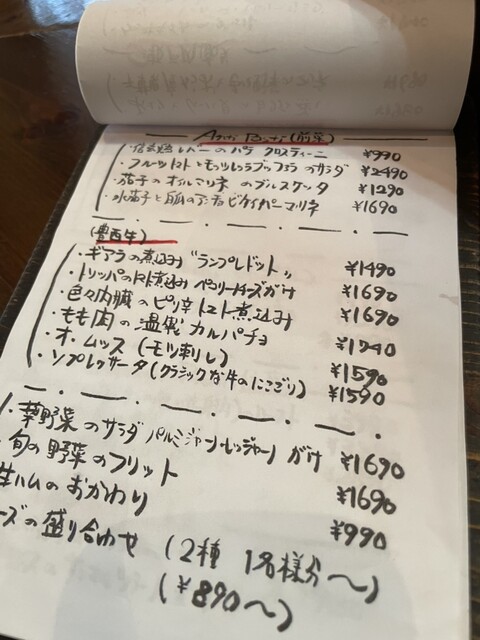 (前菜)
レバーのパテ クロスティーニ ¥990
・フルーツトマトとモッツァレラブッファラのサラダ ¥2490
・茄子のオイルマリネのブルスケッタ ¥1290
・水茄子と ケイパーマリネ ¥1690
・ギアラの煮込み "ランプレドット" ¥1490
・トリッパのトマト煮込み ペコリーノチーズがけ ¥1690
・色々内臓のピリ辛トマト煮込み ¥1690
・もも肉の温製カルパチョ ¥1740
・オ.ムッス(モツ刺し) ¥1590
・ソプレッサータ(クラシックな牛のにこごり) ¥1590
野菜のサラダ パルミジャーノレッジャーノがけ ¥1690
・旬の野菜のフリット ¥1690
生ハムのおかわり ¥990
ーズの盛り合わせ (2種 1名様分〜)
(¥890〜)